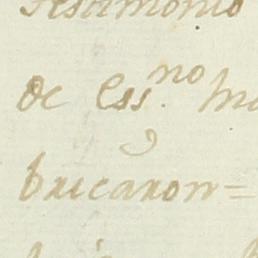 Testimonio
de Ess.no
bricaron=